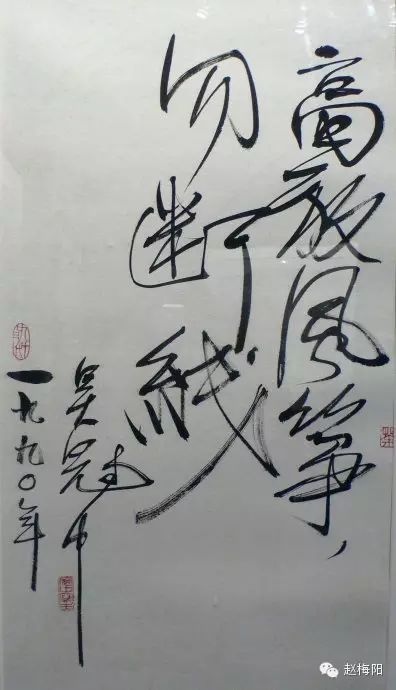 高放风筝，
勿断线
吴冠中
一九九〇年
赵梅阳